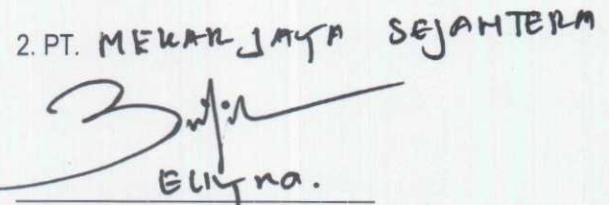 2. PT. MEKAR JAYA SEJAHTERA
Eliyna.